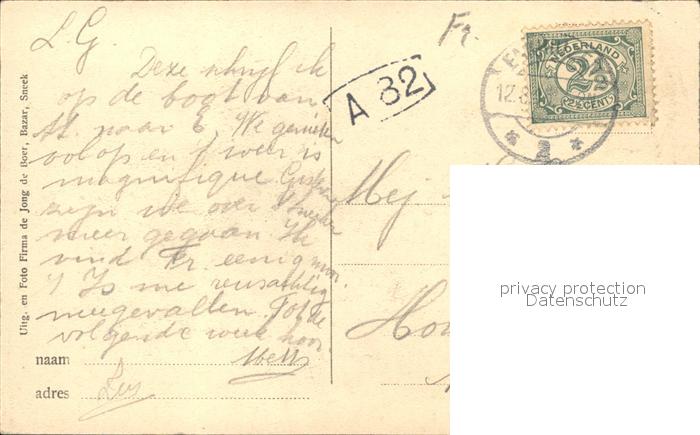 L. G
Fr.
Deze schrijf ik
op de boot van
H. naar E. We genieten
volop en 't weer is
magnifique. Gisteren
zijn we over 't Sneeker
meer gegaan. Ik
vind Fr. eenig mooi.
't Is me reusachtig
meegevallen. Tot de
volgende week hoor.
A 82
NEDERLAND
2½
2½ CENT
12.8
2
Mej
Hou
naam
adres
Uitg. en Foto Firma de Jong de Boer, Bazar, Sneek
privacy protection
Datenschutz